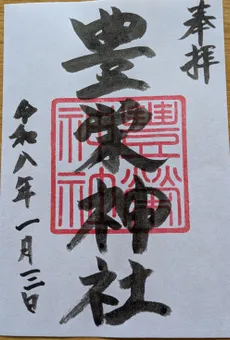 奉拝
豊栄神社
豐榮
神社
令和八年一月三日